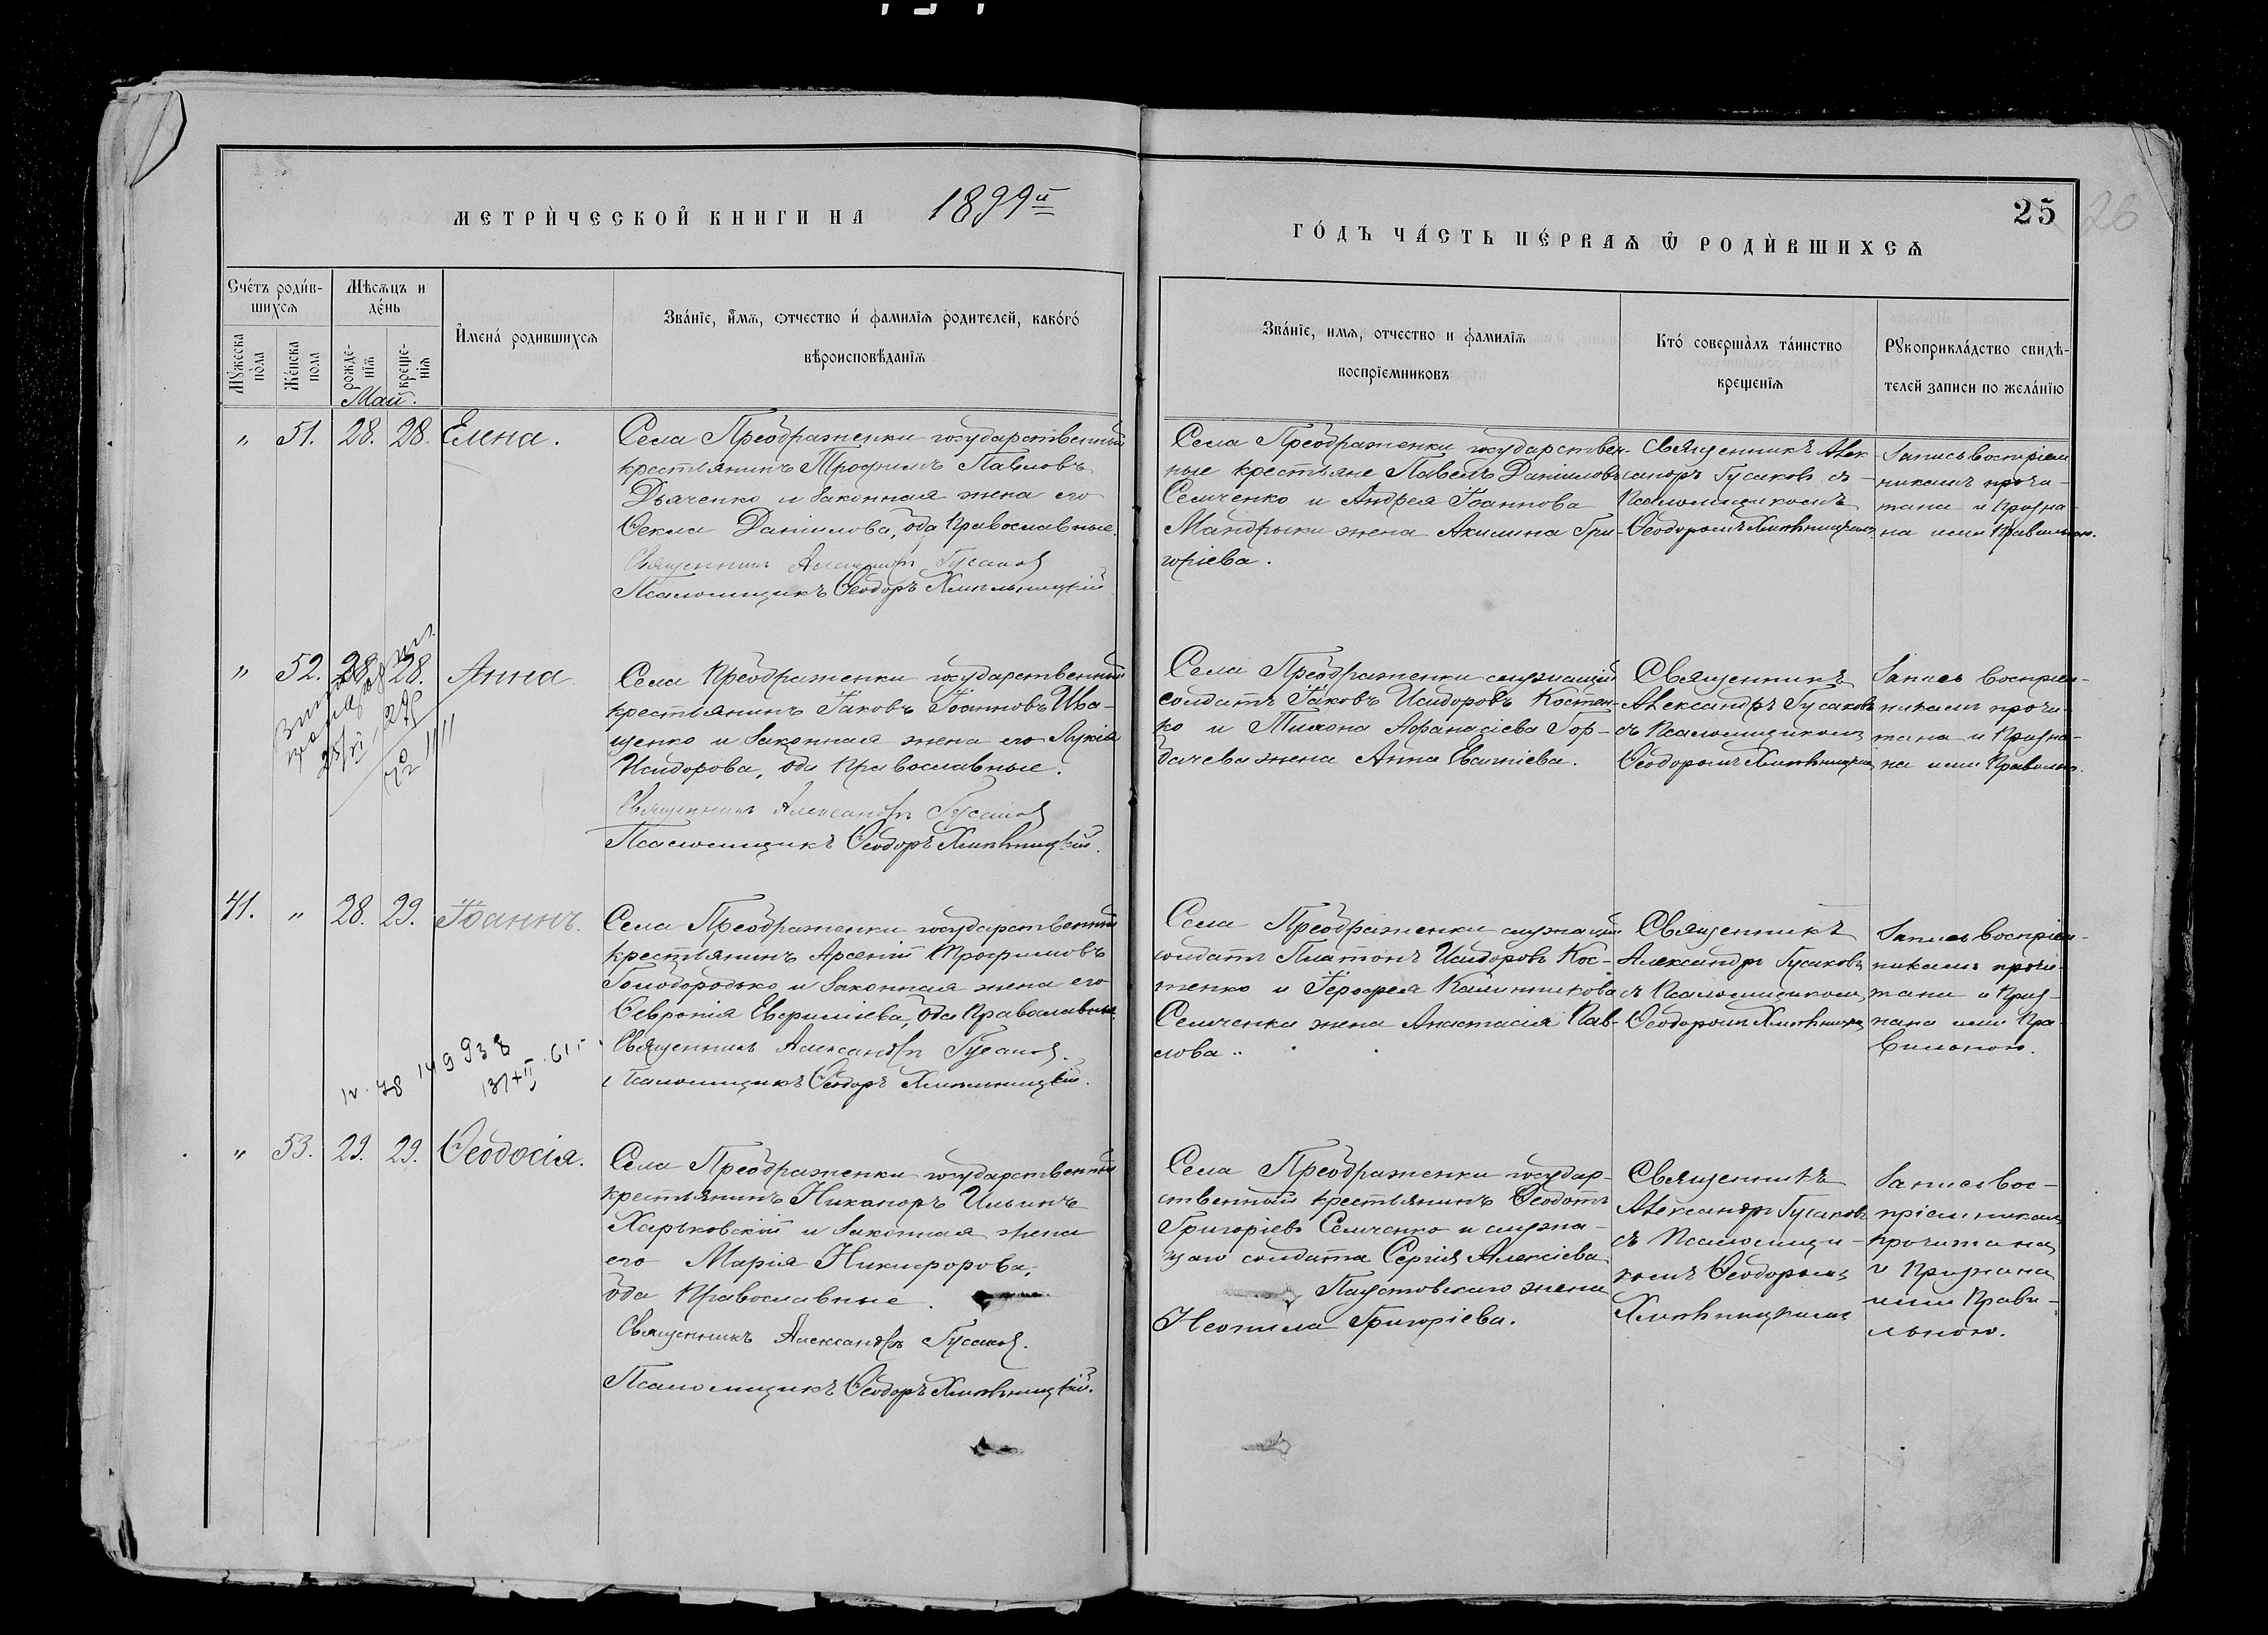 МЕТРИЧЕСКОЙ КНИГИ НА 1899й
ГОДЪ ЧАСТЬ ПЕРВАѦ Ѿ РОДИВШИХСѦ
25
26
Счетъ родив-
шихсѧ
Мѣсѧцъ и
день
Мꙋжеска
пола
Женска
пола
рожде-
нїѧ
креще-
нїѧ
Имена родившихсѧ
Званїе, имѧ, отчество и фамилїѧ родителей, какого
вѣроисповѣданїѧ
Званїе, имѧ, отчество и фамилїѧ
воспрїемниковъ
Кто совершалъ таинство
крещенїѧ
Рꙋкоприкладство свидѣ-
телей записи по желанїю
Май.
" 51. 28. 28. Елена.
Села Преображенки государственный
крестьянинъ Трофимъ Павловъ
Дьяченко и законная жена его
Ѳекла Даніилова, оба православные.
Священникъ Александръ Гусаковъ
Псаломщикъ Ѳеодоръ Хмѣльницкій
Села Преображенки государствен-
ные крестьяне Павелъ Даніиловъ
Семченко и Андрея Іоаннова
Мандрыки жена Акилина Гри-
горіева.
Священникъ Алек-
сандръ Гусаковъ съ
Псаломщикомъ
Ѳеодоромъ Хмѣльницкимъ
Запись воспріем-
никамъ прочи-
тана и призна-
на ими правильною.
" 52. 28. 28. Анна
Села Преображенки государственный
крестьянинъ Іаковъ Іоанновъ Ива-
щенко и законная жена его Лукія
Исидорова, оба православные.
Священникъ Александръ Гусаковъ
Псаломщикъ Ѳеодоръ Хмѣльницкій.
Села Преображенки служащій
солдатъ Іаковъ Исидоровъ Костен-
ко и Тихона Афанасіева Гор-
бачева жена Анна Евгеніева.
Священникъ
Александръ Гусаковъ
съ Псаломщикомъ
Ѳеодоромъ Хмѣльницкимъ
Запись воспріем-
никамъ прочи-
тана и призна-
на ими правильн.
41. " 28. 29. Іоаннъ.
Села Преображенки государственный
крестьянинъ Арсеній Трофимовъ
Голобородько и законная жена его
Ѳевронія Евфиміева, оба православные.
Священникъ Александръ Гусаковъ.
Псаломщикъ Ѳеодоръ Хмѣльницкій.
Села Преображенки служащій
солдатъ Платонъ Исидоровъ Кос-
тенко и Іерофея Калинникова
Семченка жена Анастасія Пав-
лова.
Священникъ
Александръ Гусаковъ
съ Псаломщикомъ
Ѳеодоромъ Хмѣльницкимъ
Запись воспріем-
никамъ прочи-
тана и приз-
нана ими пра-
вильною.
149938
" 53. 29. 29. Ѳеодосія.
Села Преображенки государственный
крестьянинъ Никаноръ Ильинъ
Харьковскій и законная жена
его Марія Никифорова,
оба православные.
Священникъ Александръ Гусаковъ.
Псаломщикъ Ѳеодоръ Хмѣльницкій.
Села Преображенки государ-
ственный крестьянинъ Ѳеодотъ
Григоріевъ Семченко и служа-
щаго солдата Сергія Алексіева
Паустовскаго жена
Неонила Григоріева.
Священникъ
Александръ Гусаковъ
съ Псаломщи-
комъ Ѳеодоромъ
Хмѣльницкимъ
Запись вос-
пріемникамъ
прочитана
и признана
ими прави-
льною.